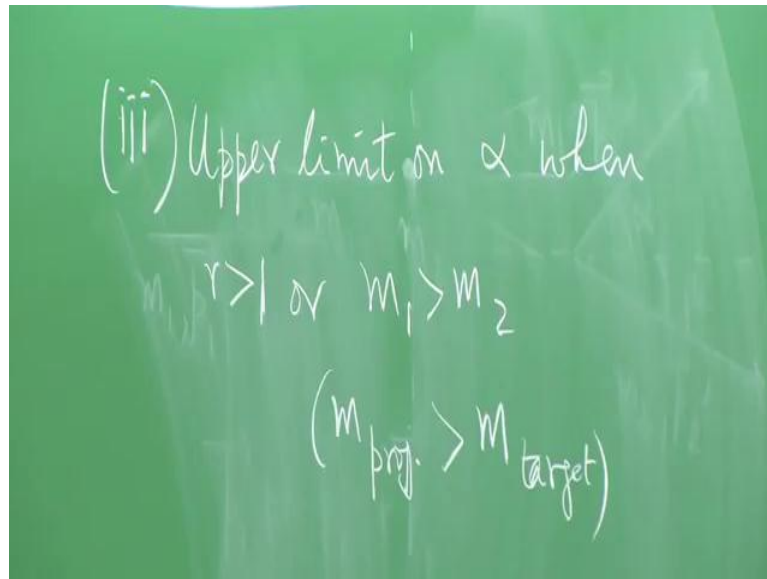 (iii) Upper limit on α when
r>1 or m₁ > m₂
(m proj. > m target)